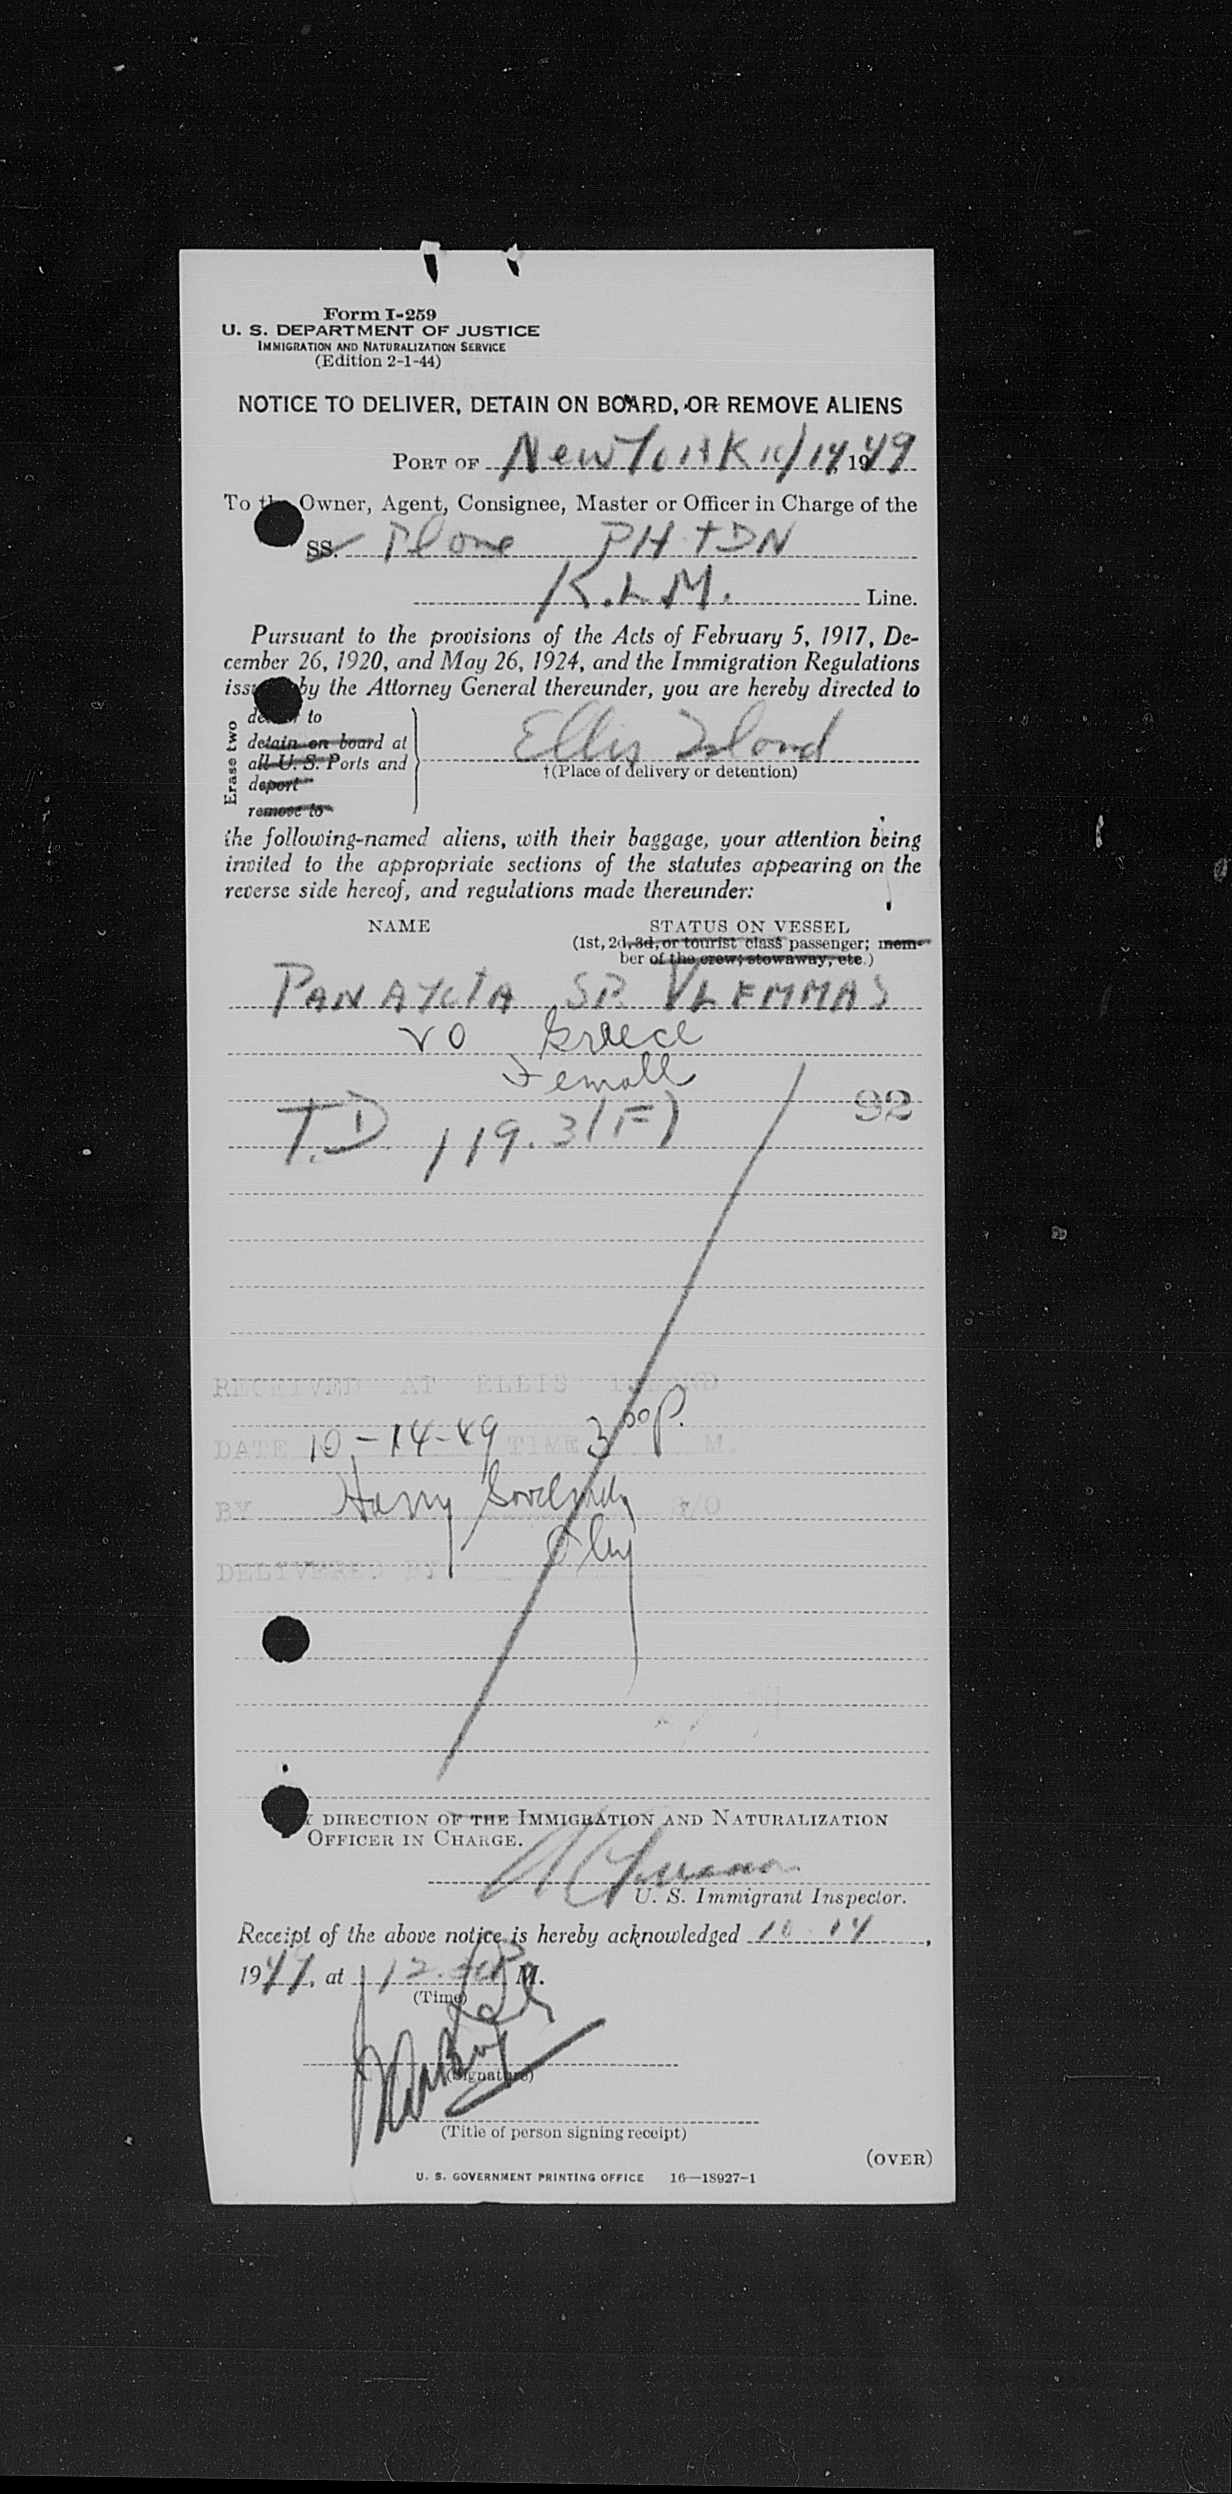 Form I-259
U. S. DEPARTMENT OF JUSTICE
IMMIGRATION AND NATURALIZATION SERVICE
(Edition 2-1-44)
NOTICE TO DELIVER, DETAIN ON BOARD, OR REMOVE ALIENS
PORT OF New York 10/14, 1949
To the Owner, Agent, Consignee, Master or Officer in Charge of the
SS. Plane PH-TDN
K.L.M. Line.
Pursuant to the provisions of the Acts of February 5, 1917, De-
cember 26, 1920, and May 26, 1924, and the Immigration Regulations
issued by the Attorney General thereunder, you are hereby directed to
Erase two
deliver to
detain on board at
all U. S. Ports and
deport
remove to
Ellis Island
†(Place of delivery or detention)
the following-named aliens, with their baggage, your attention being
invited to the appropriate sections of the statutes appearing on the
reverse side hereof, and regulations made thereunder:
NAME STATUS ON VESSEL
(1st, 2d, 3d, or tourist class passenger; mem-
ber of the crew; stowaway, etc.)
PANAYOTA SP. VLEMMAS
20 Greece
Female
92
T.D. 119.3(F)
RECEIVED AT ELLIS ISLAND
DATE 10-14-49 TIME 3 00 P. M.
BY Harry
DELIVERED BY
BY DIRECTION OF THE IMMIGRATION AND NATURALIZATION
OFFICER IN CHARGE.
U. S. Immigrant Inspector.
Receipt of the above notice is hereby acknowledged 10 14,
1949, at 12 P M.
(Time)
(Signature)
(Title of person signing receipt)
(OVER)
U. S. GOVERNMENT PRINTING OFFICE 16—18927-1